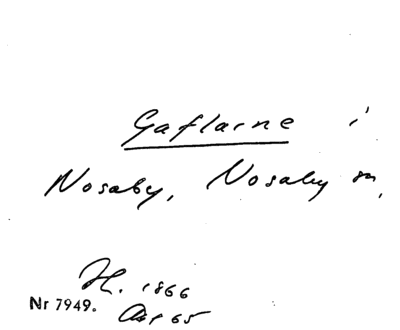 Gaflarne i
Nosaby, Nosaby sn,
H. 1866
Nr 7949. 65